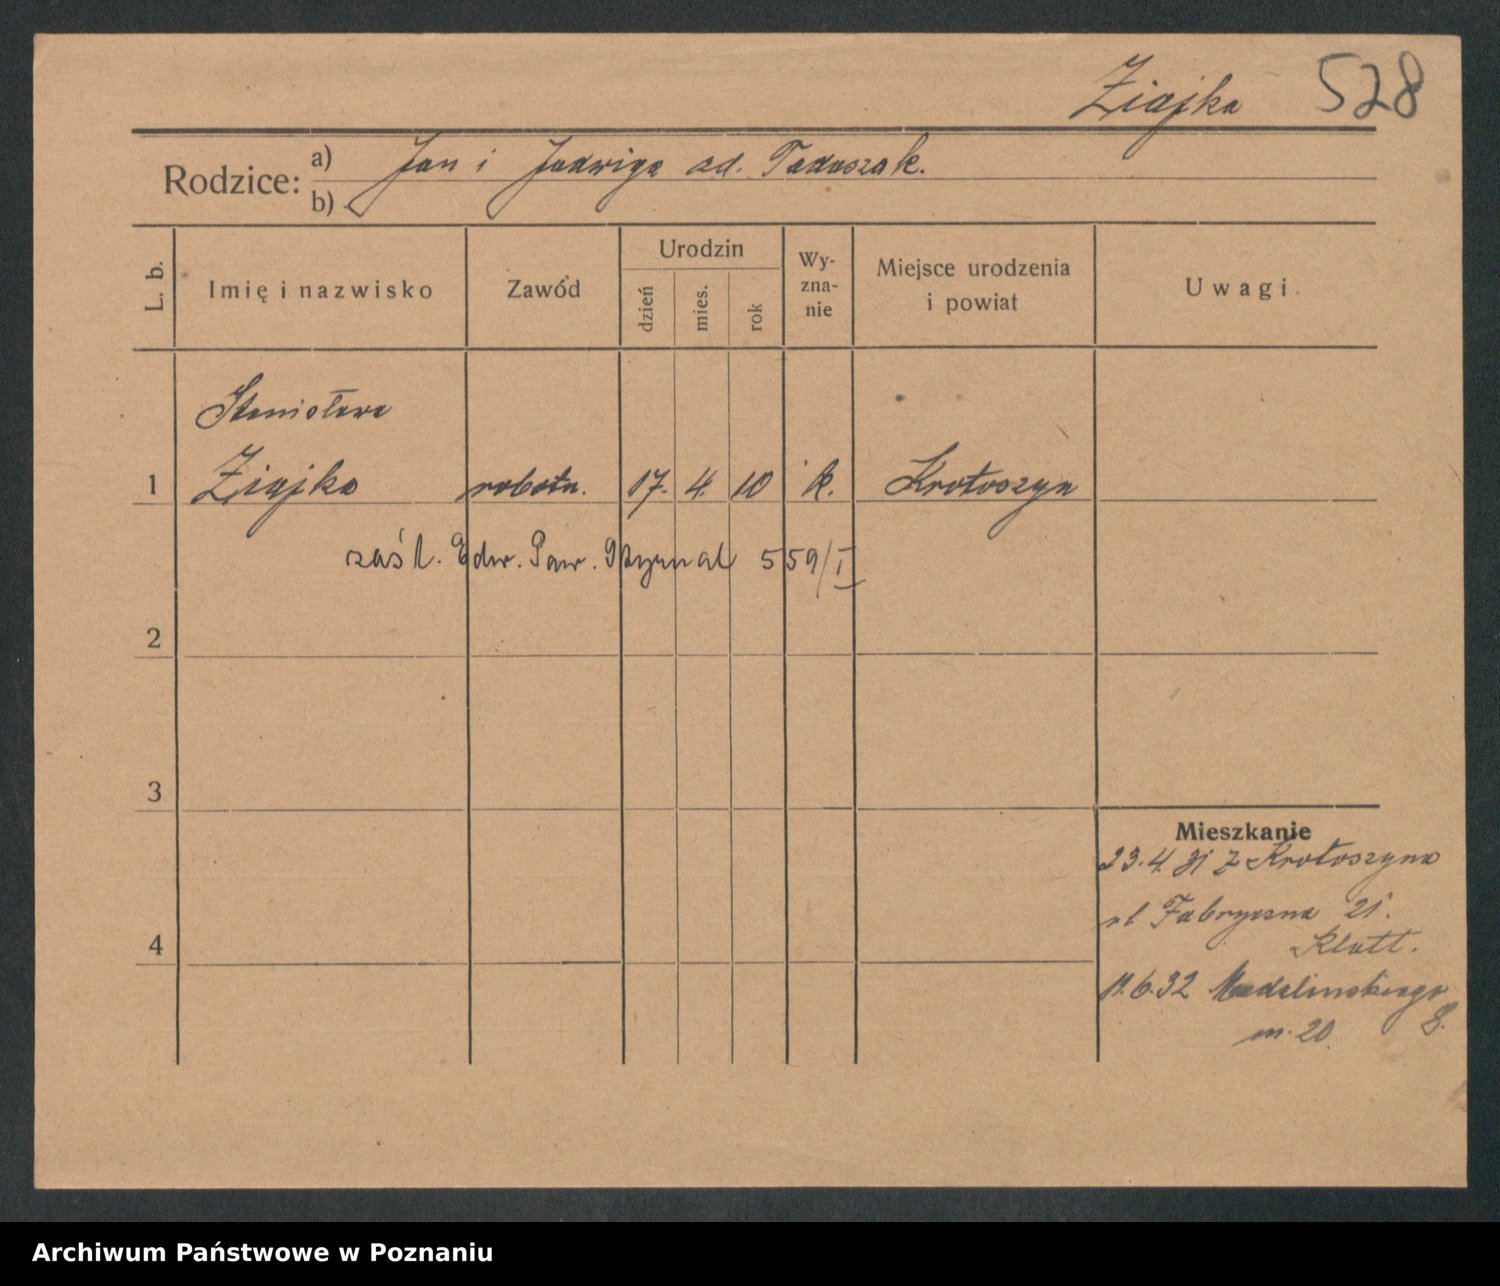 Ziajka 528
Rodzice: a) Jan i Jadwiga zd. Tadaszak.
b)
L. b. Imię i nazwisko Zawód Urodzin dzień mies. rok Wy-zna-nie Miejsce urodzenia i powiat Uwagi
Stanisława
1 Ziajka robotn. 17. 4. 10 k. Krotoszyn
zaśl. Edw. Paw. 559/I
2
3
Mieszkanie
23.4.31 z Krotoszyna
ul Fabryczna 21.
4
Klatt.
11.6.32 Madalinskiego 8.
m. 20.
Archiwum Państwowe w Poznaniu